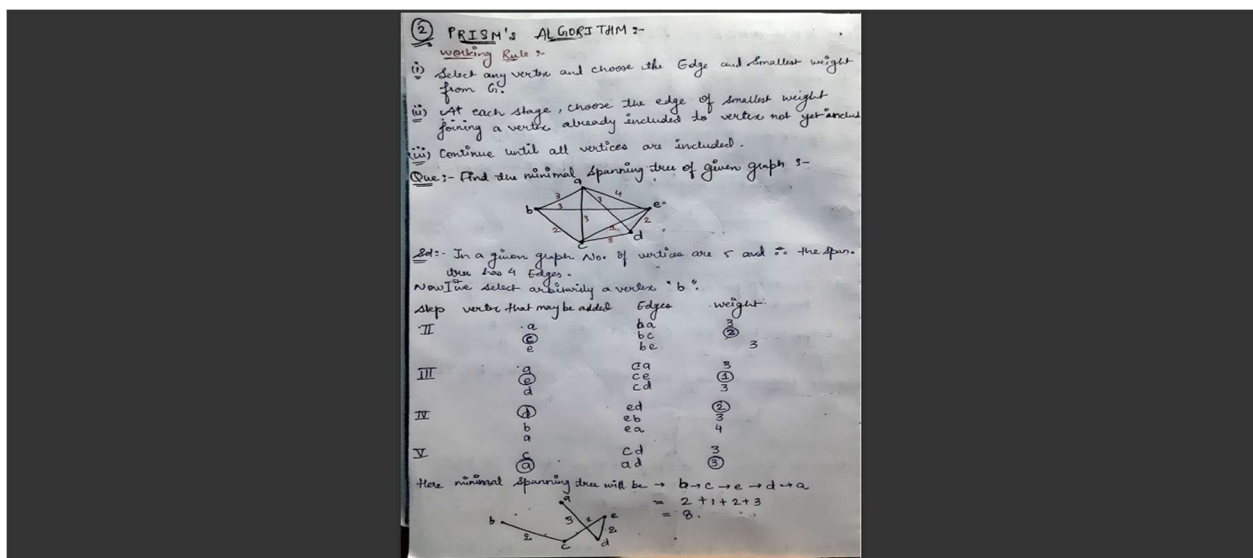 ② PRISM's ALGORITHM :-
Working Rule :-
(i) Select any vertex and choose the Edge and Smallest weight
from G.
(ii) At each stage, choose the edge of smallest weight
joining a vertex already included to vertex not yet includ
(iii) Continue until all vertices are included.
Que :- Find the minimal spanning tree of given graph :-
a
3 3 4
b 3 e
3
2 2
d
c 3
Sol :- In a given graph No. of vertices are 5 and ∴ the span.
tree has 4 Edges.
Now I we select arbitrarily a vertex "b".
Step vertex that may be added Edges weight
II a ba 3
ⓒ bc ②
e be 3
III a ca 3
ⓔ ce ①
d cd 3
IV ⓓ ed ②
b eb 3
a ea 4
V c cd 3
ⓐ ad ③
Here minimal spanning tree will be → b→c→e→d→a
= 2+1+2+3
= 8.
a
b 3 1 e
2 2
c d